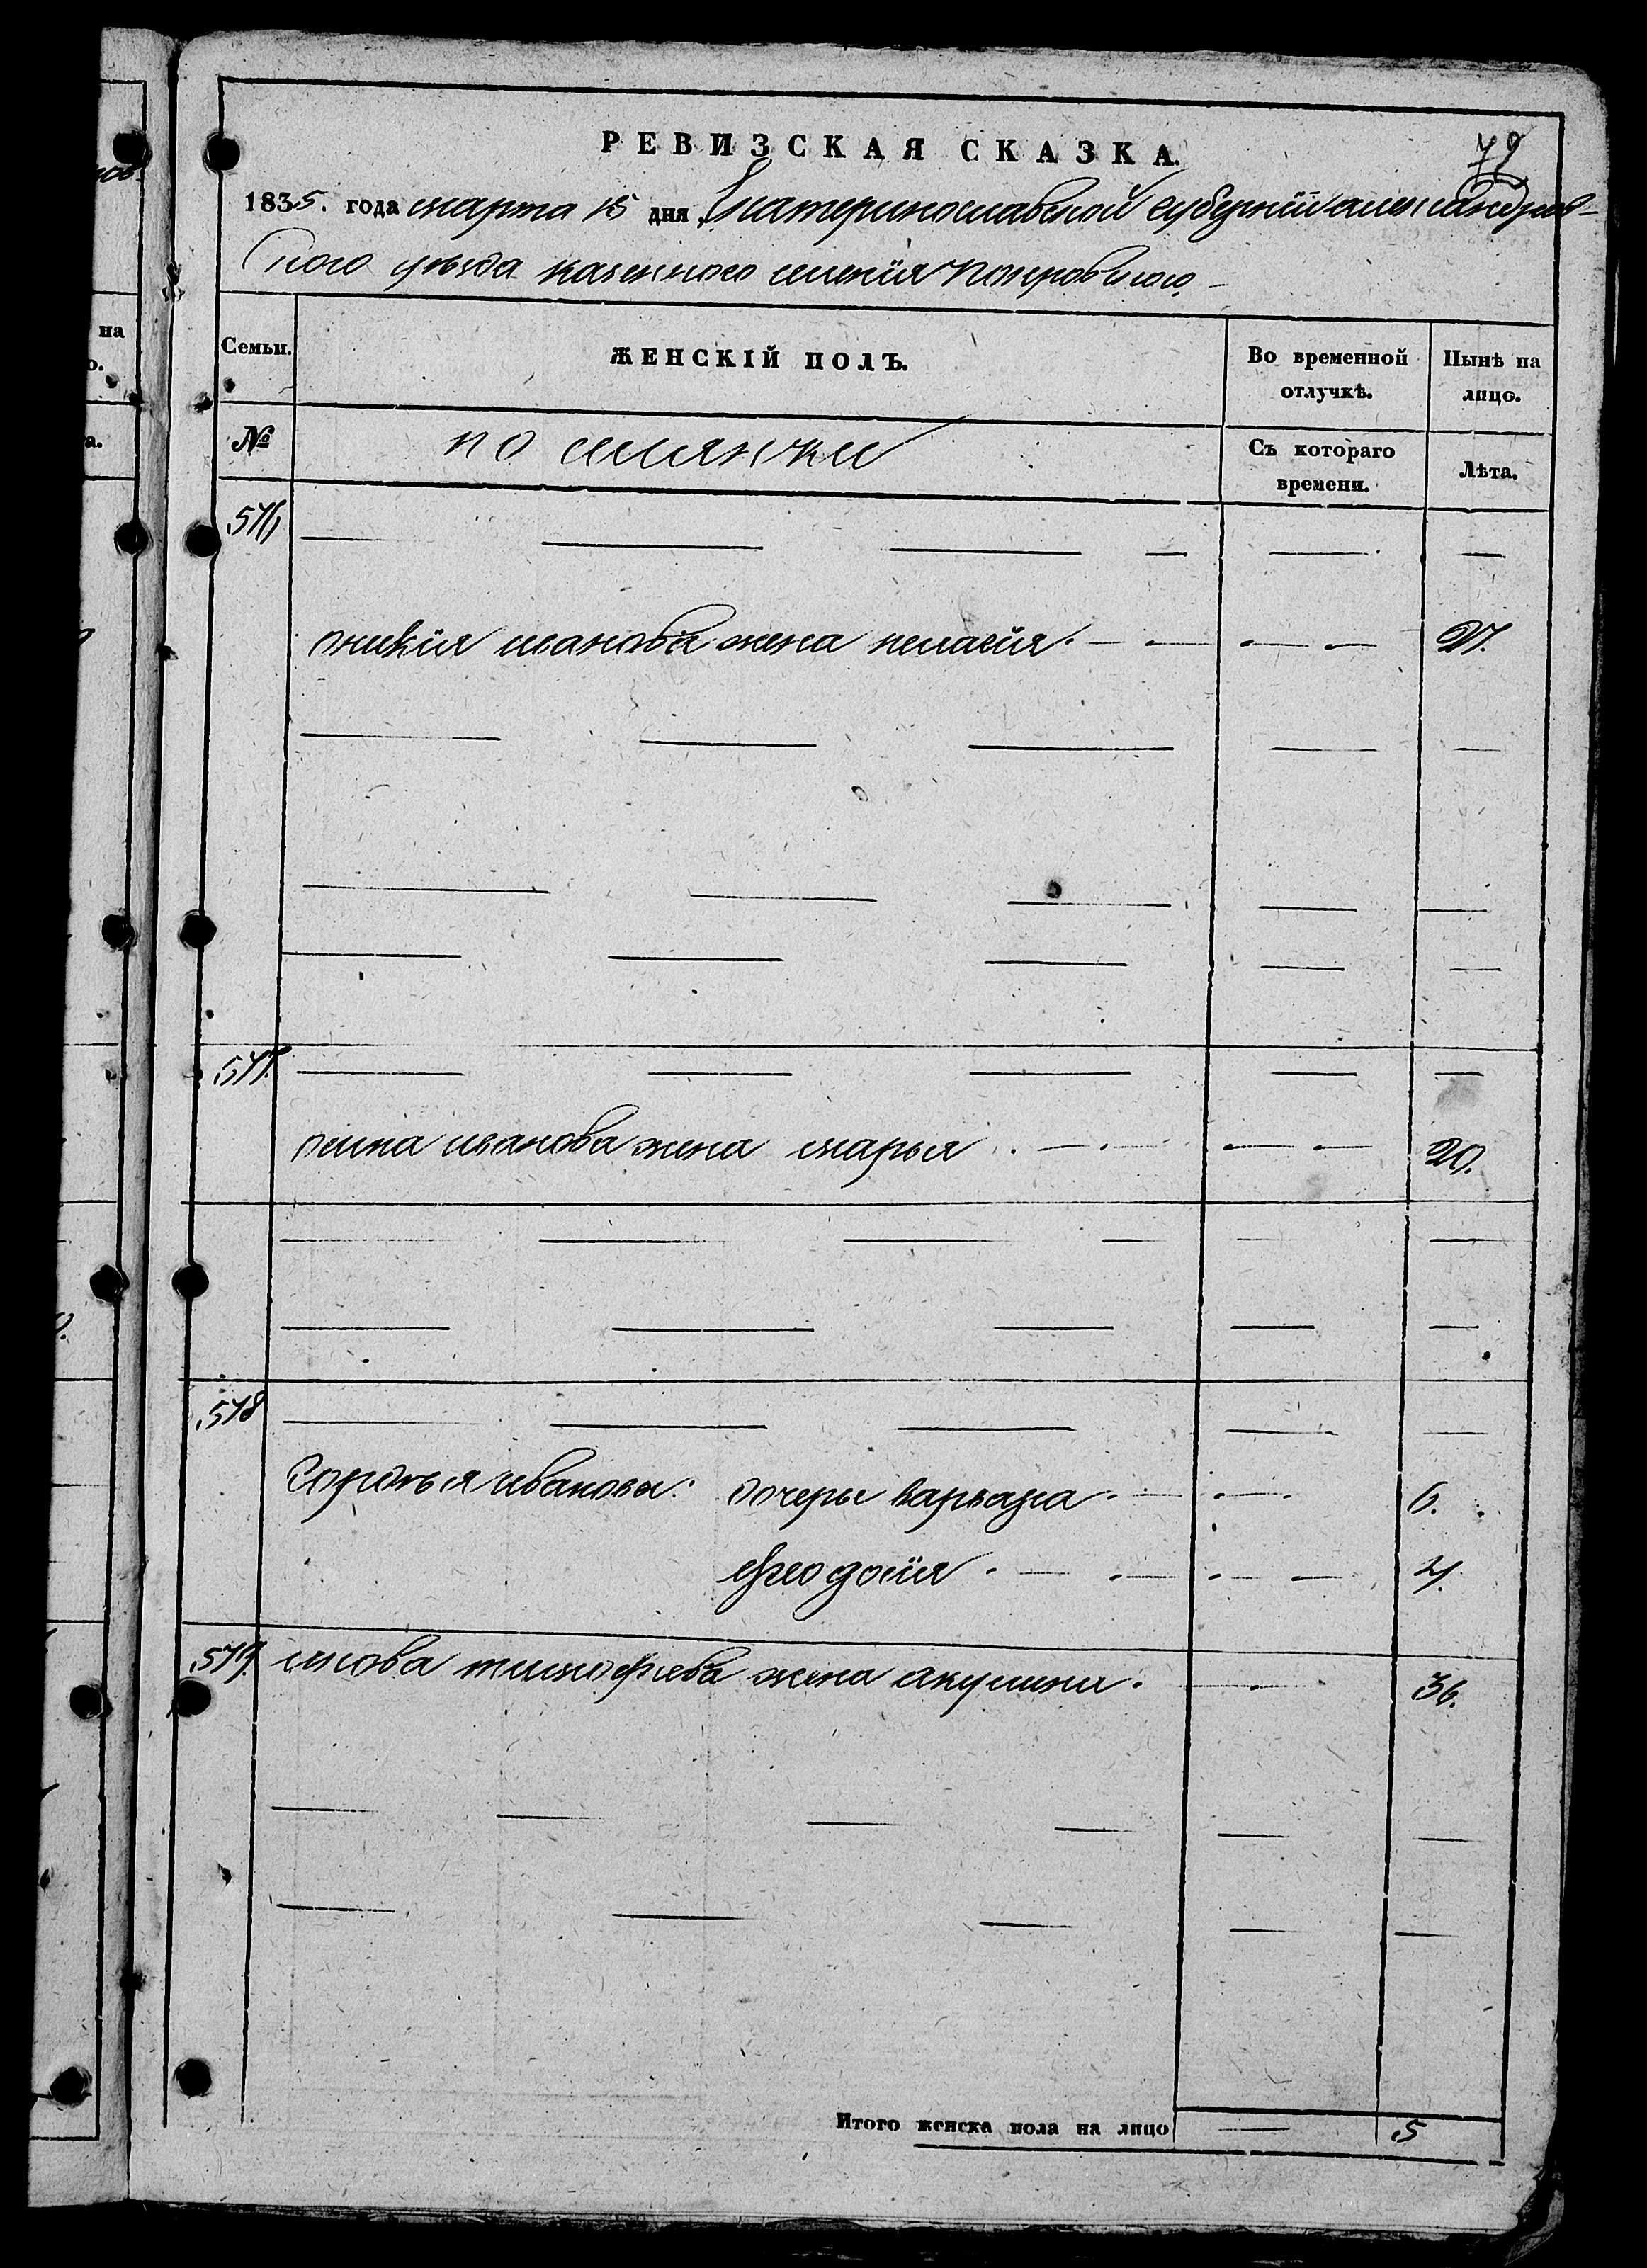 РЕВИЗСКАЯ СКАЗКА.
1835. года марта 15 дня Екатеринославской губернїи александров-
ского уѣзда казенного селенїя покровского
Семьи.
ЖЕНСКІЙ ПОЛЪ.
Во временной отлучкѣ.
Нынѣ на лицо.
№
поселянки
Съ котораго времени.
Лѣта.
576
иванова жена пелагея. 27.
577.
осипа иванова жена марья. 20.
578
иванова дочеры варвара. 6.
феодосїя. 4.
579. тимофеева жена акулина. 36.
Итого женска пола на лицо 5